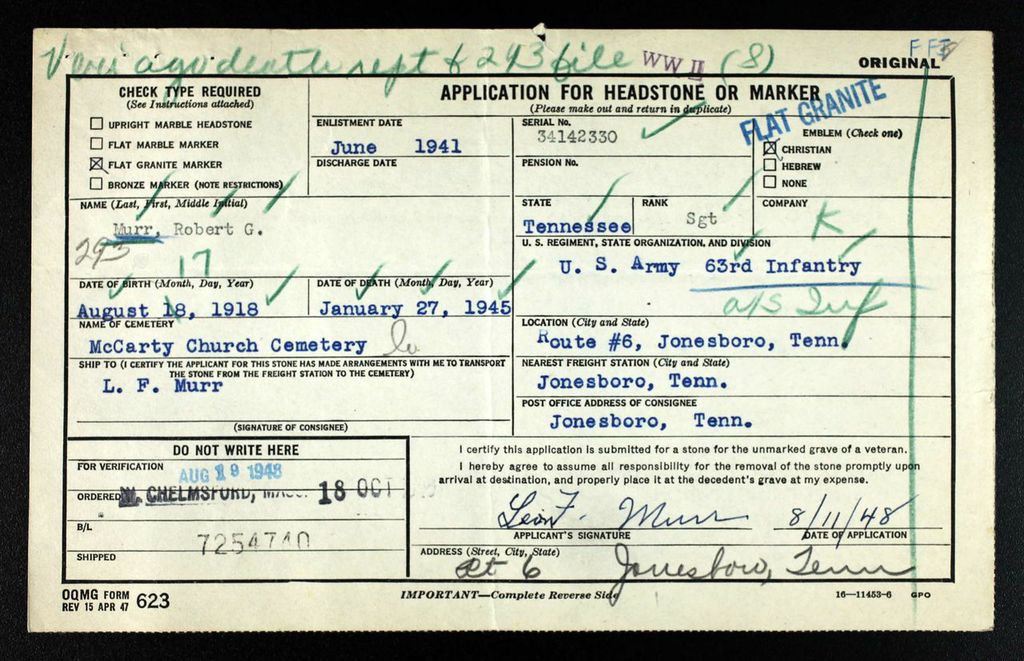 Veri ago death rept & 293 file WW II (8)
ORIGINAL
CHECK TYPE REQUIRED
(See Instructions attached)
UPRIGHT MARBLE HEADSTONE
FLAT MARBLE MARKER
☒ FLAT GRANITE MARKER
BRONZE MARKER (NOTE RESTRICTIONS)
APPLICATION FOR HEADSTONE OR MARKER
(Please make out and return in duplicate)
FLAT GRANITE
ENLISTMENT DATE
June 1941
DISCHARGE DATE
SERIAL No.
34142330
PENSION No.
EMBLEM (Check one)
☒ CHRISTIAN
HEBREW
NONE
NAME (Last, First, Middle Initial)
Murr, Robert G.
293
STATE
Tennessee
RANK
Sgt
COMPANY
K
U. S. REGIMENT, STATE ORGANIZATION, AND DIVISION
U. S. Army 63rd Infantry
a/S Inf
17
DATE OF BIRTH (Month, Day, Year)
August 18, 1918
DATE OF DEATH (Month, Day, Year)
January 27, 1945
NAME OF CEMETERY
McCarty Church Cemetery
LOCATION (City and State)
Route #6, Jonesboro, Tenn.
SHIP TO (I CERTIFY THE APPLICANT FOR THIS STONE HAS MADE ARRANGEMENTS WITH ME TO TRANSPORT
THE STONE FROM THE FREIGHT STATION TO THE CEMETERY)
L. F. Murr
(SIGNATURE OF CONSIGNEE)
NEAREST FREIGHT STATION (City and State)
Jonesboro, Tenn.
POST OFFICE ADDRESS OF CONSIGNEE
Jonesboro, Tenn.
DO NOT WRITE HERE
FOR VERIFICATION
AUG 19 1948
ORDERED
W. CHELMSFORD, MASS. 18 OCT
B/L
7254740
SHIPPED
I certify this application is submitted for a stone for the unmarked grave of a veteran.
I hereby agree to assume all responsibility for the removal of the stone promptly upon
arrival at destination, and properly place it at the decedent's grave at my expense.
Leon F. Murr 8/11/48
APPLICANT'S SIGNATURE DATE OF APPLICATION
ADDRESS (Street, City, State)
Rt 6 Jonesboro, Tenn
OQMG FORM
REV 15 APR 47 623
IMPORTANT—Complete Reverse Side
16—11453-6 GPO